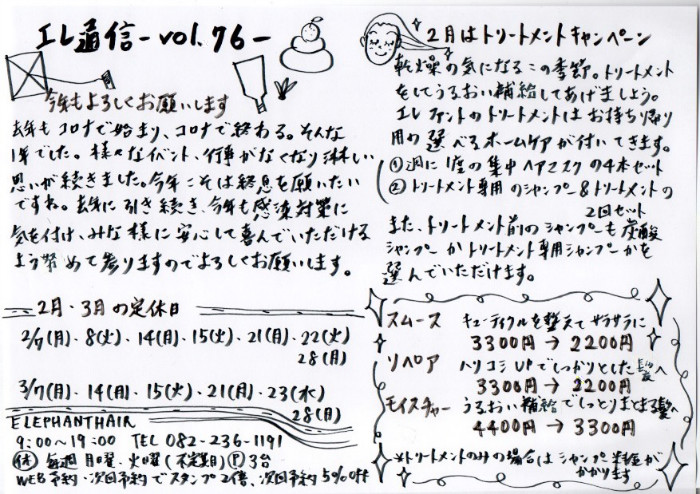 エレ通信 - vol.76 -
今年もよろしくお願いします
去年もコロナで始まり、コロナで終わる。そんな
1年でした。様々なイベント、行事がなくなり淋しい
思いが続きました。今年こそは終息を願いたい
ですね。去年に引き続き、今年も感染対策に
気を付け、みな様に安心して喜んでいただける
よう努めて参りますのでよろしくお願いします。
2月・3月の定休日
2/7(月)・8(火)、14(月)・15(火)、21(月)・22(火)
28(月)
3/7(月)・14(月)・15(火)、21(月)・23(水)
28(月)
ELEPHANTHAIR
9:00~19:00 TEL 082-236-1191
(休)毎週月曜・火曜(不定期) Ⓟ3台
WEB予約・次回予約でスタンプ2倍、次回予約5%off
2月はトリートメントキャンペーン
乾燥の気になるこの季節。トリートメント
をしてうるおい補給してあげましょう。
エレファントのトリートメントはお持ち帰り
用の選べるホームケアが付いてきます。
①週に1度の集中ヘアマスクの4本セット
②トリートメント専用のシャンプー&トリートメントの
2回セット
また、トリートメント前のシャンプーも炭酸
シャンプーかトリートメント専用シャンプーかを
選んでいただけます。
スムース キューティクルを整えてサラサラに
3300円→2200円
リペア ハリコシUPでしっかりとした髪へ
3300円→2200円
モイスチャー うるおい補給でしっとりまとまる髪へ
4400円→3300円
※トリートメントのみの場合はシャンプー料金が
かかります